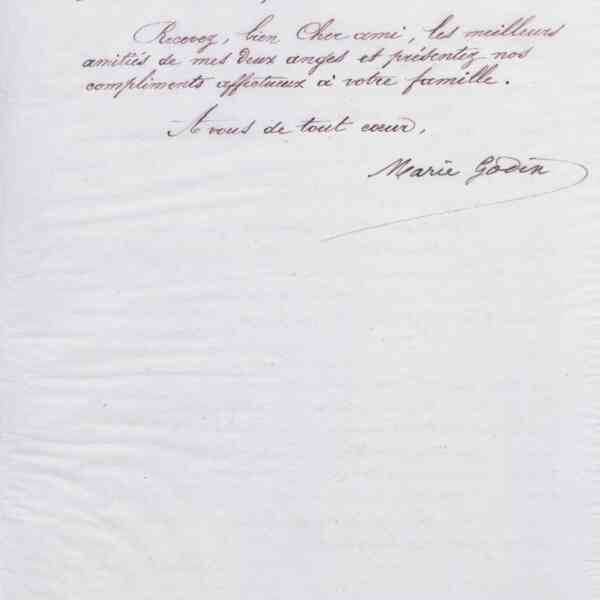 Recevez, bien Cher ami, les meilleurs
amitiés de mes deux anges et présentez nos
compliments affectueux à votre famille.
A vous de tout cœur,
Marie Godin